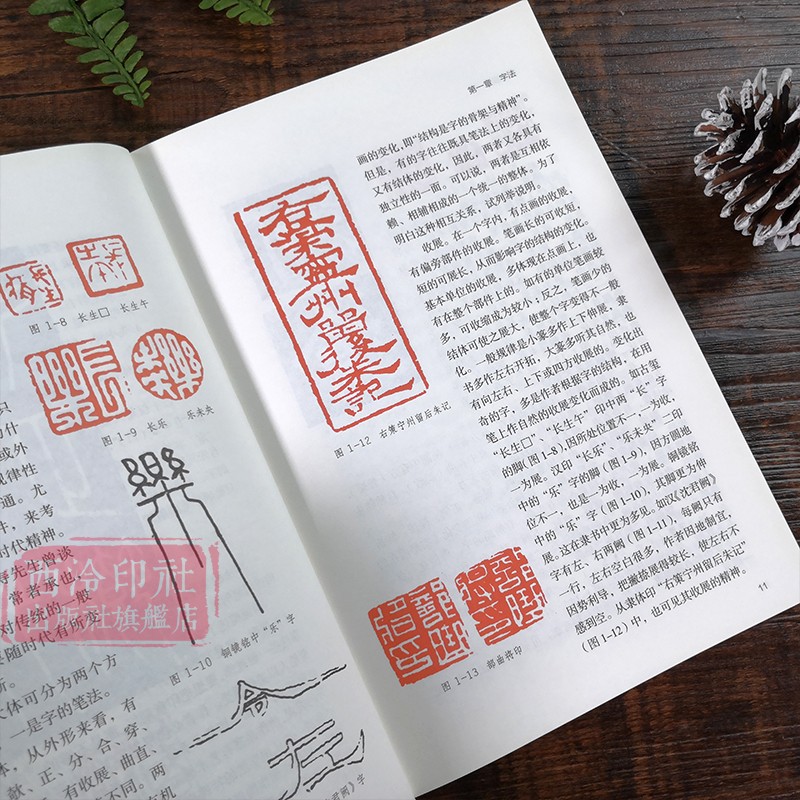 图 1-8 长生□ 长生午
图 1-9 长乐 乐未央
只
为什
或外
规律性
通。尤
件,来考
时代精神。
先生曾谈
常者幸也,
对传统的一般
随时代有所变
图 1-10 铜镜铭中“乐”字
所。
体可分为两个方
一是字的笔法。
体,从外形来看,有
献、正、分、合、穿、
有收展、曲直、
不同。两
有机
君阙》字
西泠印社
出版社旗舰店
第一章 字法
图 1-12 右策宁州留后朱记
图 1-13 部曲将印
画的变化,即“结构是字的骨架与精神”。
但是,有的字往往既具笔法上的变化,
又有结体的变化,因此,两者又各具有
独立性的一面。可以说,两者是互相依
赖、相辅相成的一个统一的整体。为了
明白这种相互关系,试列举说明。
收展。在一个字内,有点画的收展,
有偏旁部件的收展。笔画长的可收短,
短的可展长,从而影响字的结构的变化。
基本单位的收展,多体现在点画上,也
有在整个部件上的。如有的单位笔画较
多,可收缩成为较小;反之,笔画少的
结体可使之展大,使整个字变得不一般
化。一般规律是小篆多作上下伸展,隶
书多作左右开拓,大篆多听其自然,也
有向左右、上下或四方收展的。变化出
奇的字,多是作者根据字的结构,在用
笔上作自然的收展变化而成的。如古玺
“长生□”、“长生午”印中两“长”字
的脚(图1-8),因所处位置不一,一为收
一为展。汉印“长乐”、“乐未央”二印
中的“乐”字的脚(图1-9),因方圆地
位不一,也是一为收,一为展。铜镜铭
中的“乐”字(图1-10),其脚更为伸
展。这在隶书中更为多见。如汉《沈君阙》
字有左、右两阙(图1-11),每阙只有
一行,左右空白很多,作者因地制宜、
因势利导,把撇捺展得较长,使左右不
感到空。从隶体印“右策宁州留后朱记”
(图1-12)中,也可见其收展的精神。
11